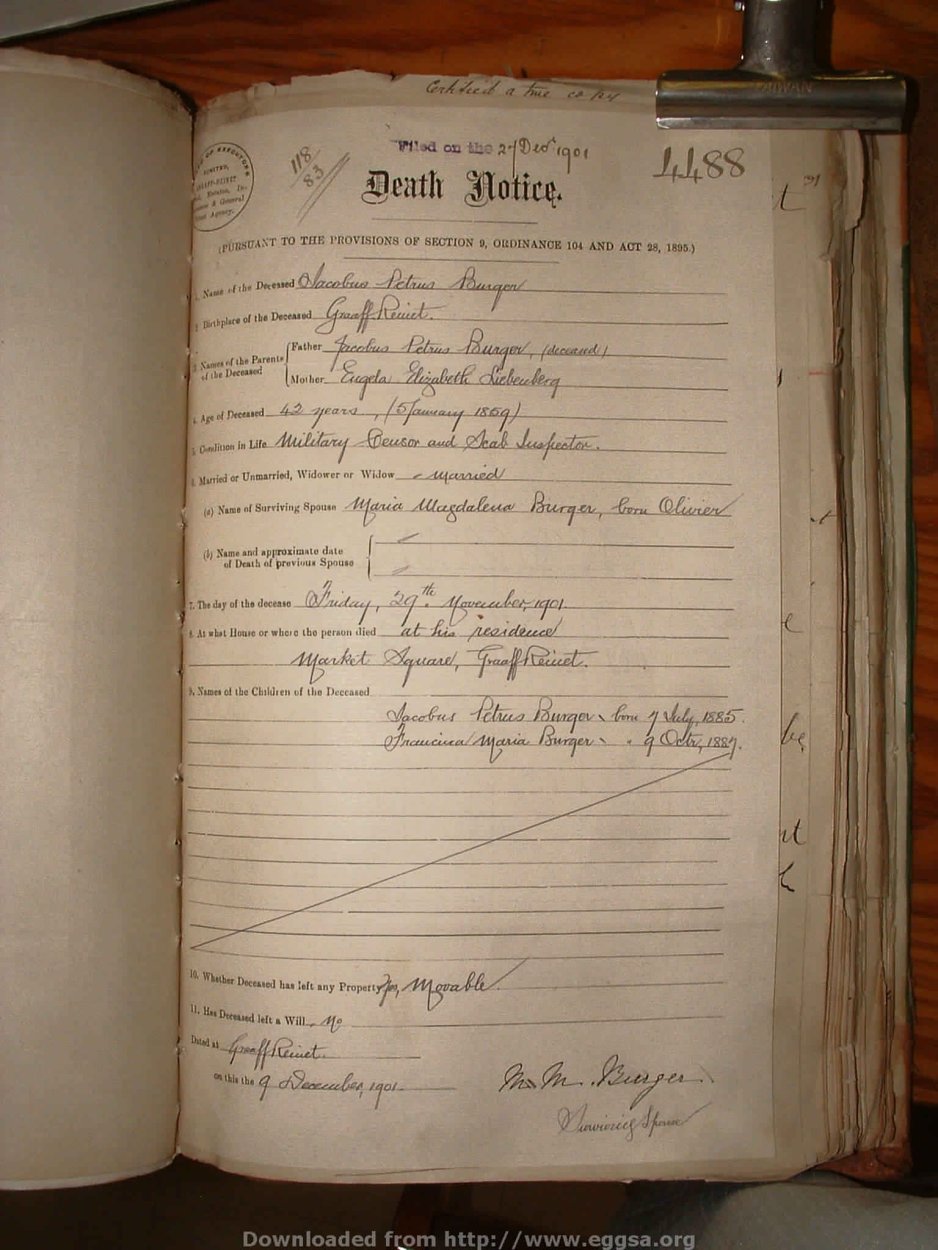 Certified a true copy
TAIWAN
Filed on the 27 Decr 1901
4488
118/83
OF EXECUTORS
LIMITED,
GRAAFF-REINET
& General
Agency.
Death Notice.
(PURSUANT TO THE PROVISIONS OF SECTION 9, ORDINANCE 104 AND ACT 28, 1895.)
1. Name of the Deceased Jacobus Petrus Burger
2. Birthplace of the Deceased Graaff Reinet.
3. Names of the Parents of the Deceased
Father Jacobus Petrus Burger, (deceased)
Mother Engela Elizabeth Liebenberg
4. Age of Deceased 42 years, (5 January 1859)
5. Condition in Life Military Censor and Scab Inspector.
6. Married or Unmarried, Widower or Widow married
(a) Name of Surviving Spouse Maria Magdalena Burger, born Olivier
(b) Name and approximate date
of Death of previous Spouse
7. The day of the decease Friday, 29th November, 1901.
8. At what House or where the person died at his residence
Market Square, Graaff Reinet.
9. Names of the Children of the Deceased
Jacobus Petrus Burger born 7 July, 1885.
Francina Maria Burger " 9 Octr, 1887.
10. Whether Deceased has left any Property Yes, Movable.
11. Has Deceased left a Will No
Dated at Graaff Reinet.
on this the 9 December, 1901.
M. M. Burger
Surviving Spouse
Downloaded from http://www.eggsa.org